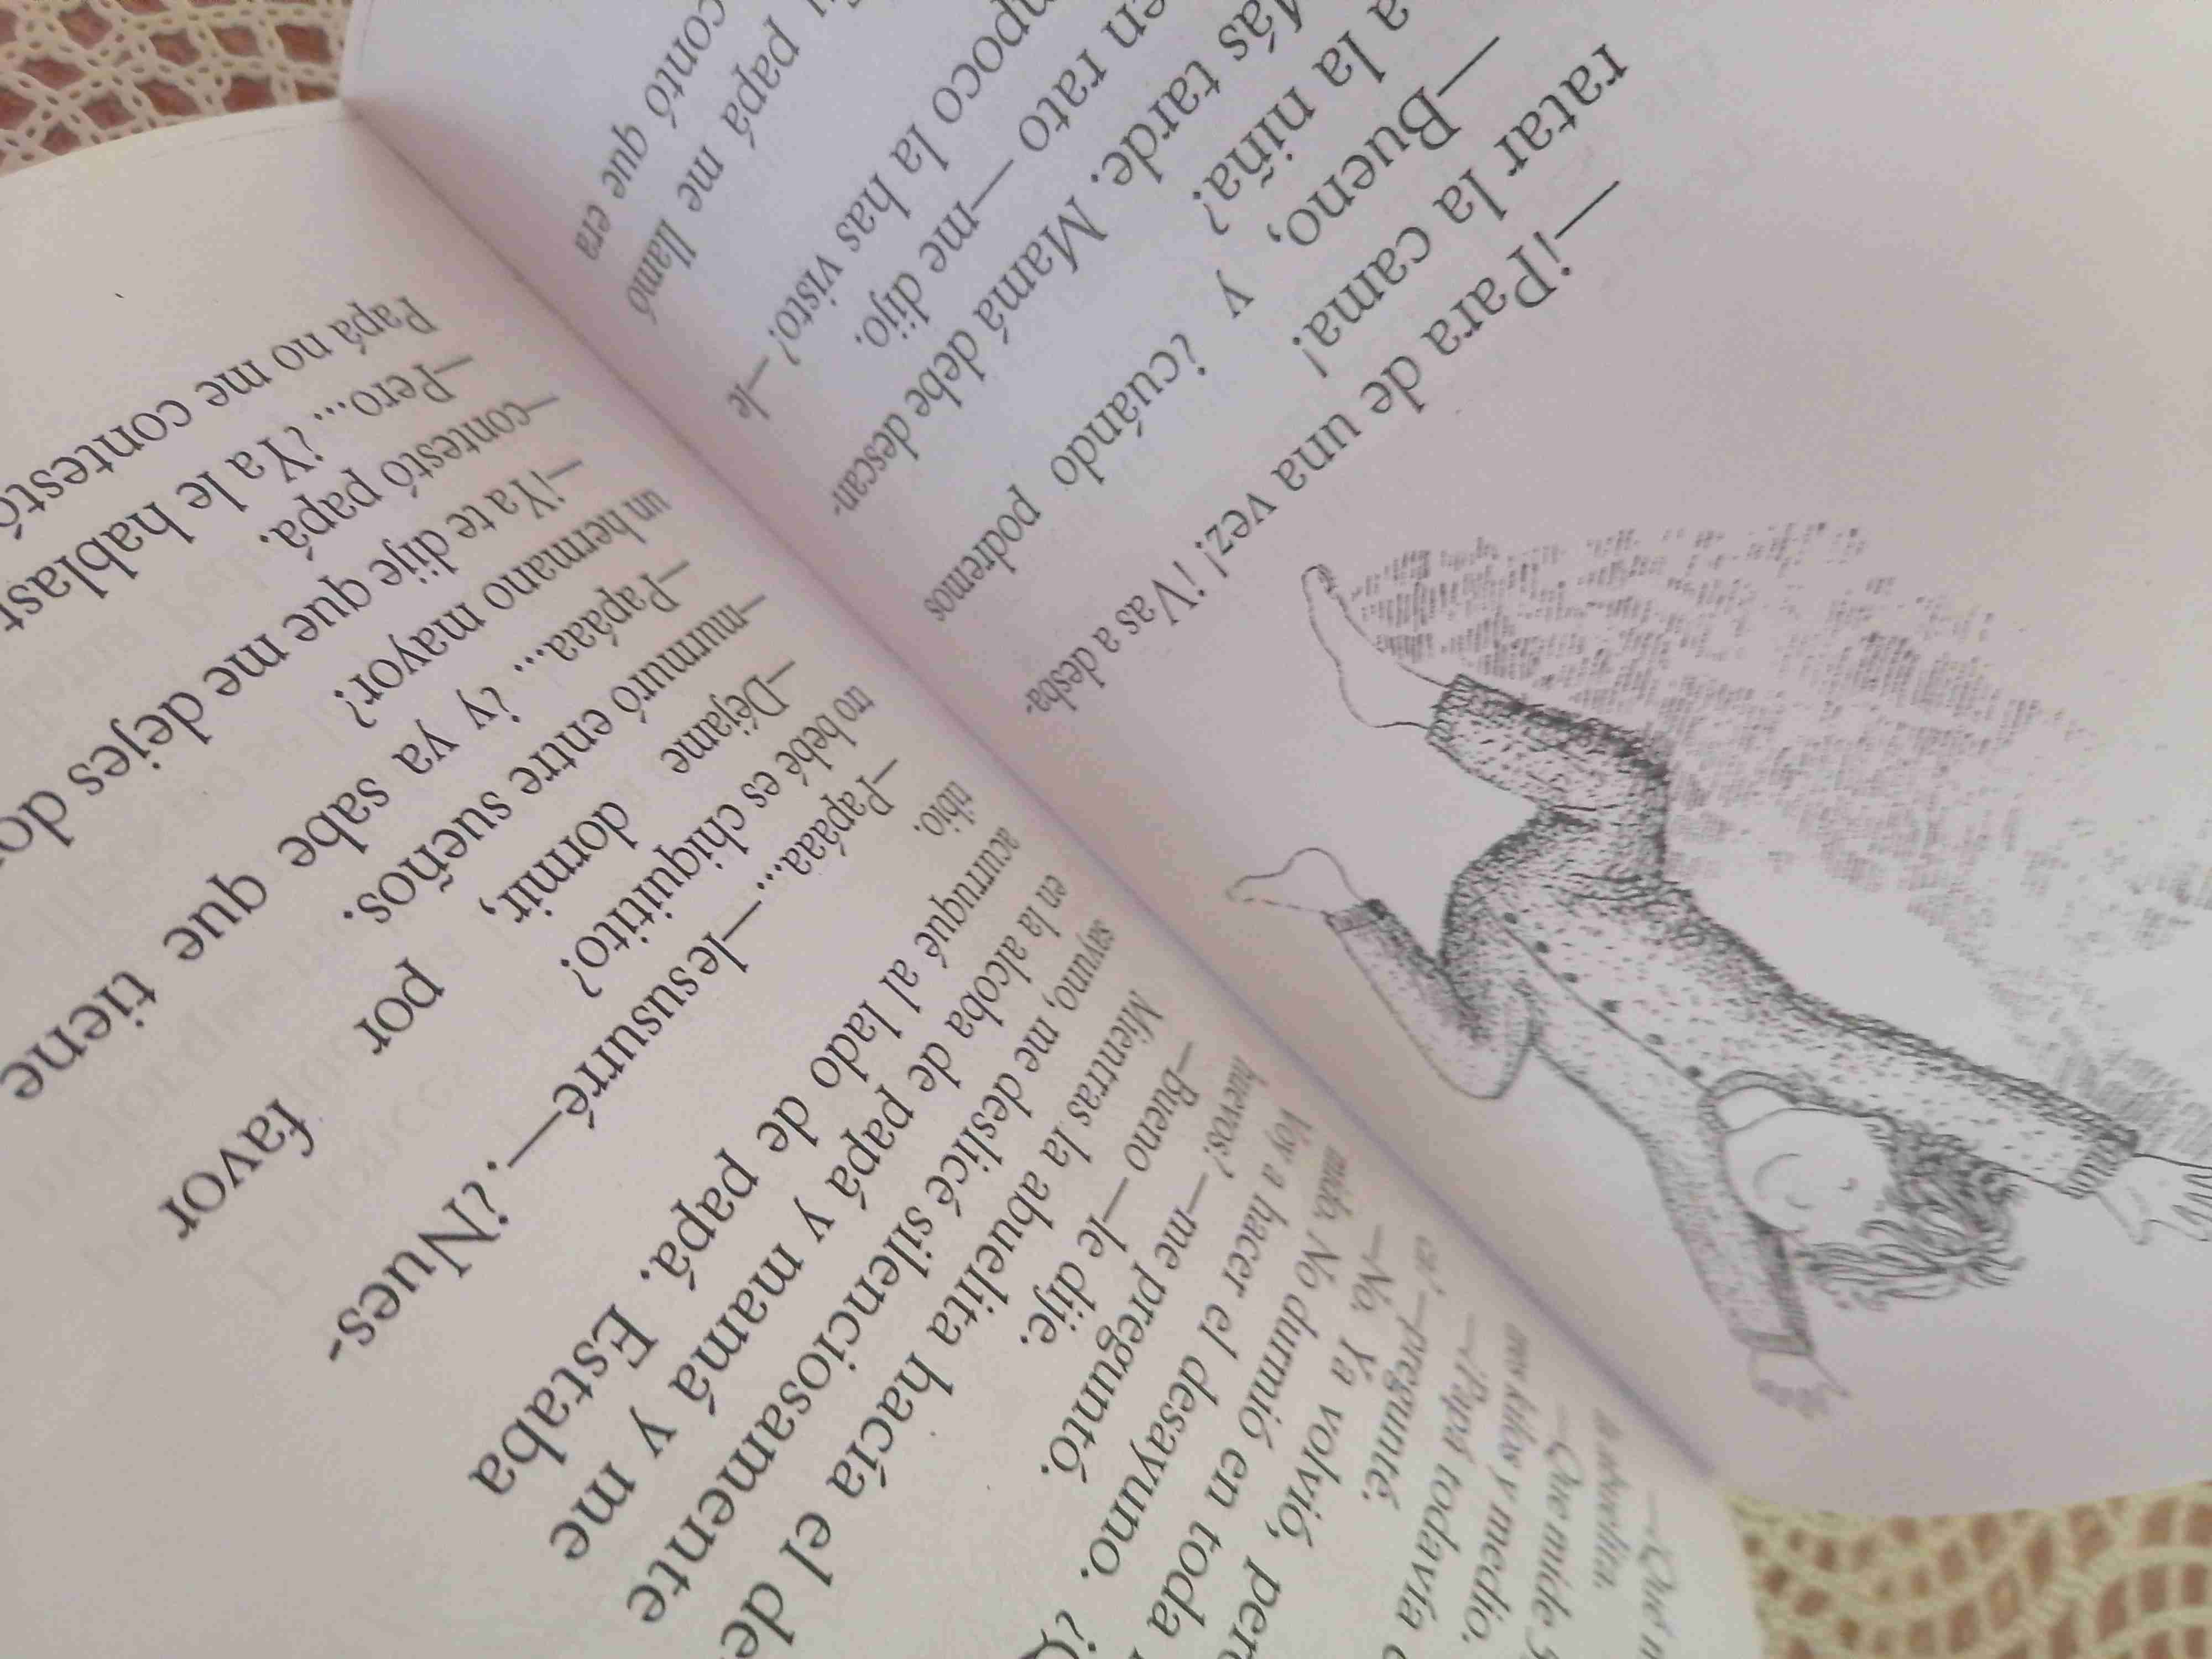 —¡Para de una vez! ¡Vas a desba-
ratar la cama!
—Bueno, y ¿cuándo podremos
a la niña?
Más tarde. Mamá debe descan-
en rato —me dijo.
la has visto? —le
papá me llamó
contó que era
—¿Qué
la abuelita.
—Que mide
kilos y medio.
—¿Papá todavía
—pregunté.
—No. Ya volvió,
mido. No durmió en toda
Voy a hacer el desayuno.
huevos? —me preguntó.
—Bueno —le dije.
Mientras la abuelita hacía el de
sayuno, me deslicé silenciosamente
en la alcoba de papá y mamá y me
acurruqué al lado de papá. Estaba
tibio.
—Papáaa... —le susurré—. ¿Nues-
tro bebé es chiquitito?
—Déjame dormir, por favor
—murmuró entre sueños.
—Papáaa... ¿y ya sabe que tiene
un hermano mayor?
—¡Ya te dije que me dejes
—contestó papá.
—Pero... ¿Ya le hablast
Papá no me contestó